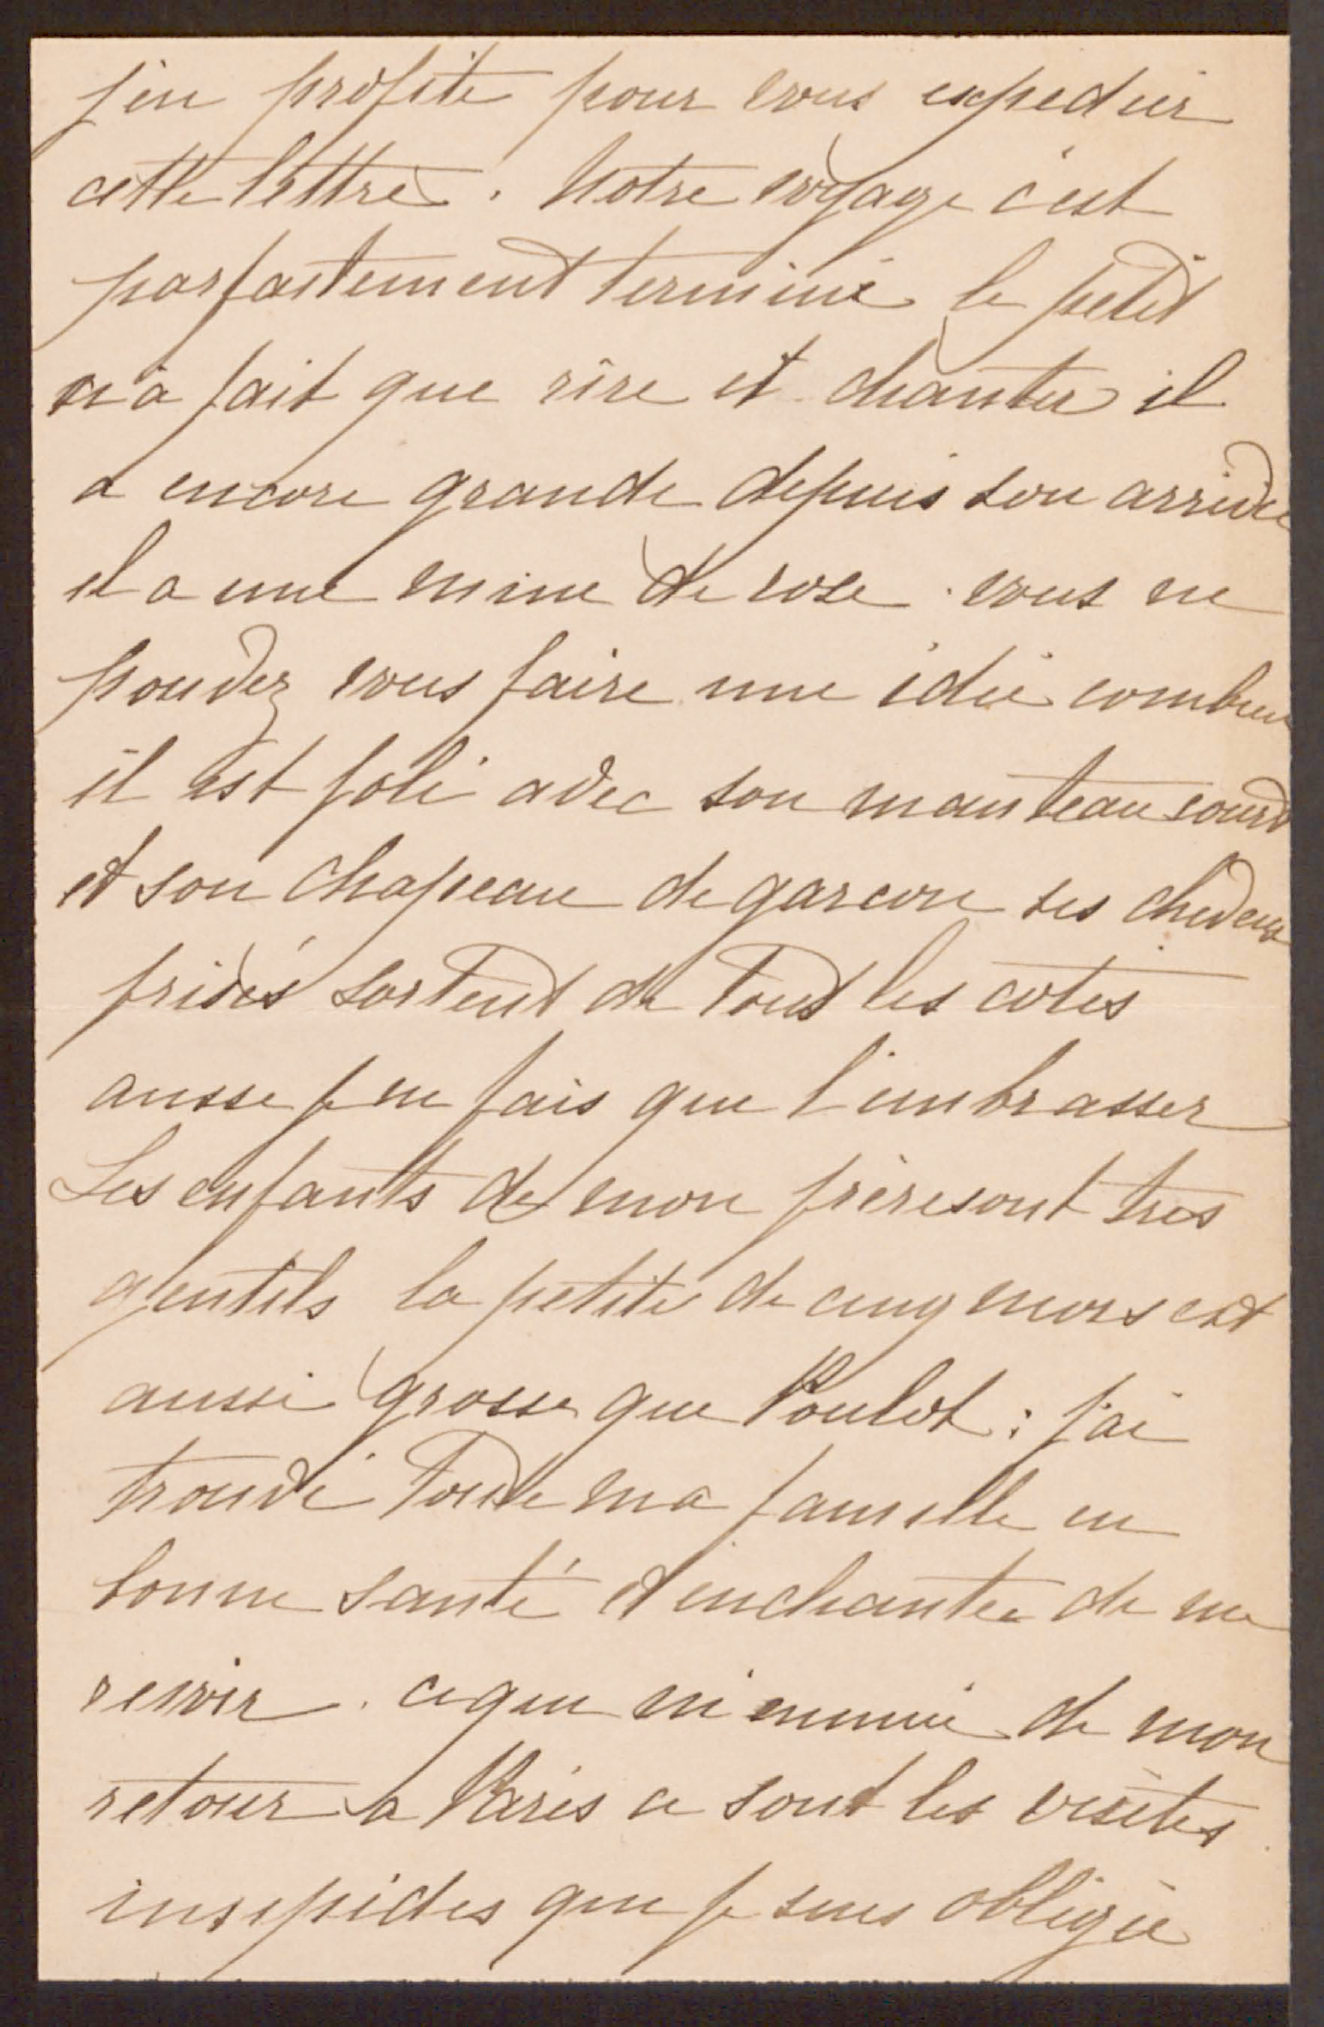 j'en profite pour vous expedier
cette lettre. Notre voyage c'est
parfaitement terminé le petit
n'a fait que rire et chanter il
a encore grande depuis son arrivée
il a une mine de rose. vous ne
pouvez vous faire une idée combien
il est joli avec son manteau court
et son chapeau de garcon ses cheveux
frisés sortent de tout les cotés
ausse je ne fais que l'embrasser
Les enfants de mon frère sont tres
gentils la petite de cinq mois est
aussi grosse que Poulot: j'ai
trouvé toute ma famille en
bonne santé et enchantée de me
revoir. ce que m'ennuie de mon
retour a Paris ce sont les visites
insipides que je suis obligée